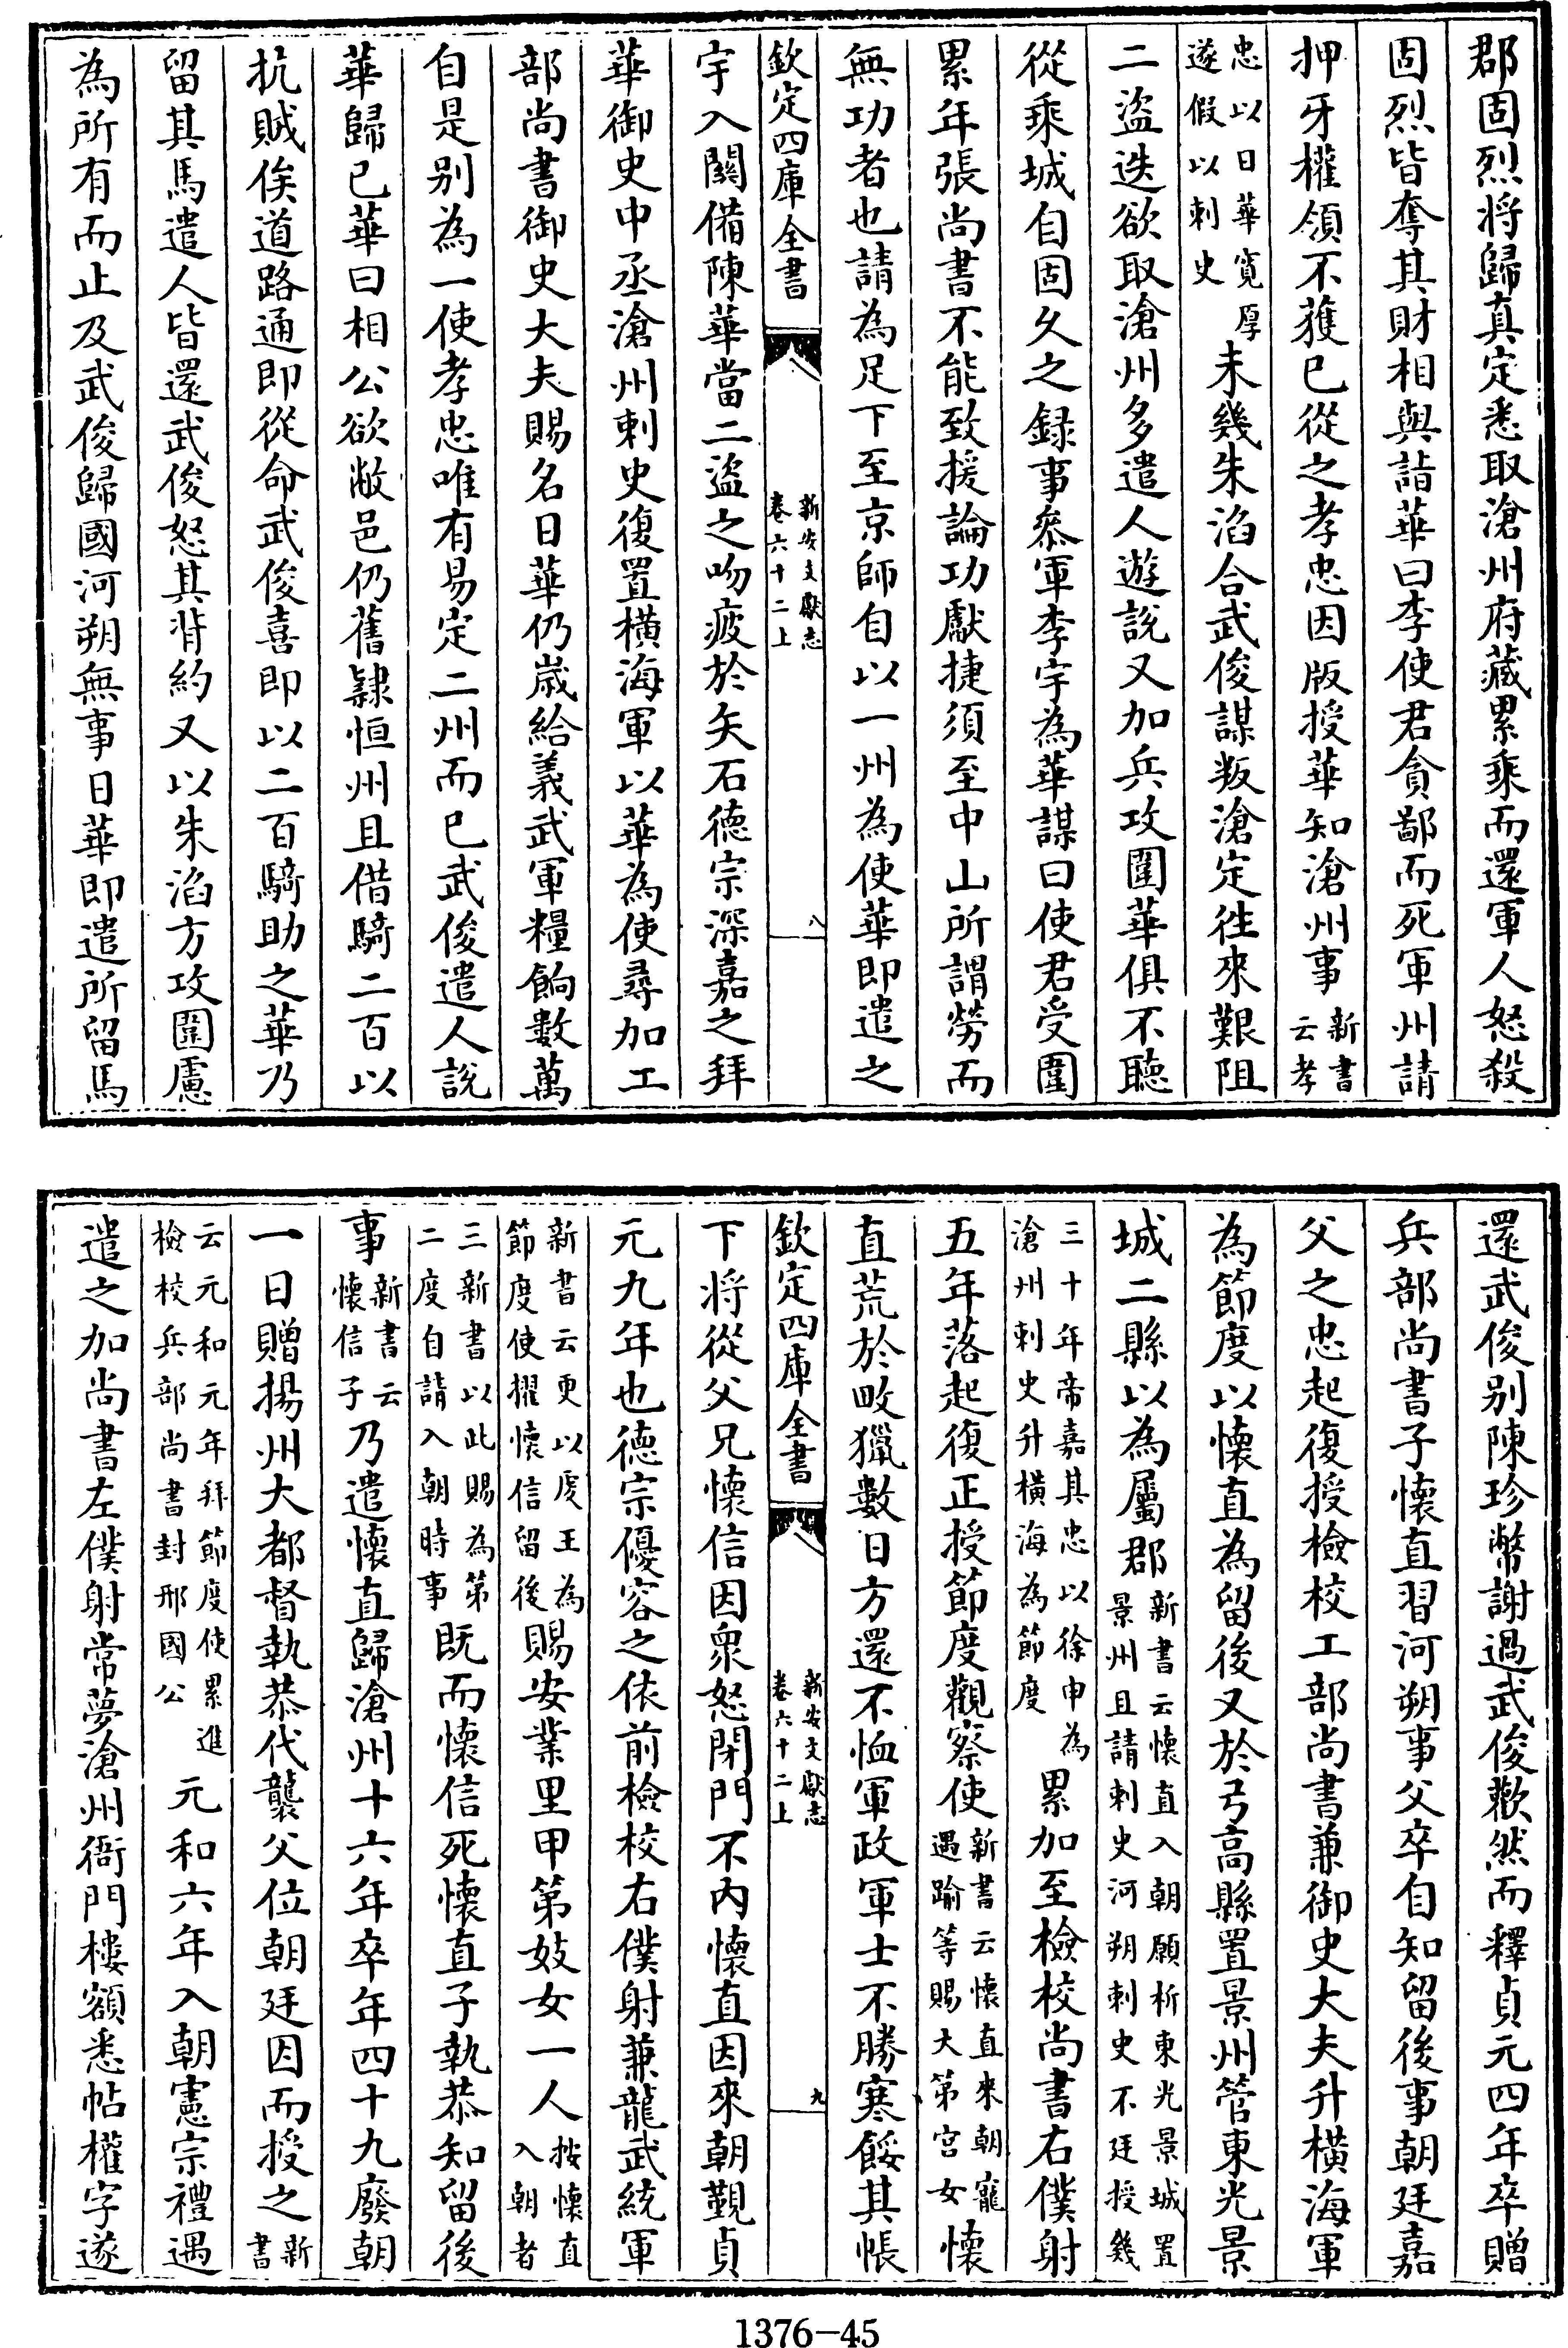 郡固烈將歸真定悉取滄州府藏累乘而還軍人怒殺
固烈皆奪其財相與詣華曰李使君貪鄙而死軍州請
押牙權領不獲已從之孝忠因版授華知滄州事新書云孝
忠以日華寛厚遂假以刺史未幾朱滔合武俊謀叛滄定徃來艱阻
二盜迭欲取滄州多遣人遊説又加兵攻圍華俱不聽
從乘城自固久之録事叅軍李宇為華謀曰使君受圍
累年張尚書不能致援論功獻捷須至中山所謂勞而
無功者也請為足下至京師自以一州為使華即遣之
欽定四庫全書
新安文獻志
卷六十二上
八
宇入闗備陳華當二盜之吻疲於矢石德宗深嘉之拜
華御史中丞滄州刺史復置横海軍以華為使尋加工
部尚書御史大夫賜名日華仍嵗給義武軍糧餉數萬
自是别為一使孝忠唯有易定二州而已武俊遣人説
華歸已華曰相公欲敝邑仍舊隷恒州且借騎二百以
抗賊俟道路通即從命武俊喜即以二百騎助之華乃
留其馬遣人皆還武俊怒其背約又以朱滔方攻圍慮
為所有而止及武俊歸國河朔無事日華即遣所留馬
還武俊别陳珍幣謝過武俊歡然而釋貞元四年卒贈
兵部尚書子懐直習河朔事父卒自知留後事朝廷嘉
父之忠起復授檢校工部尚書兼御史大夫升横海軍
為節度以懐直為留後又於弓高縣置景州管東光景
城二縣以為屬郡新書云懐直入朝願析東光景城置景州且請刺史河朔刺史不廷授幾
三十年帝嘉其忠以徐申為滄州刺史升横海為節度累加至檢校尚書右僕射
五年落起復正授節度觀察使新書云懐直來朝寵遇踰等賜大第宫女懐
直荒於畋獵數日方還不恤軍政軍士不勝寒餒其帳
欽定四庫全書
新安文獻志
卷六十二上
九
下將從父兄懐信因衆怒閉門不内懐直因來朝覲貞
元九年也德宗優容之依前檢校右僕射兼龍武統軍
新書云更以䖍王為節度使擢懐信留後賜安業里甲第妓女一人按懐直入朝者
三新書以此賜為第二度自請入朝時事既而懐信死懐直子執恭知留後
事新書云懐信子乃遣懐直歸滄州十六年卒年四十九廢朝
一日贈揚州大都督執恭代襲父位朝廷因而授之新書
云元和元年拜節度使累進檢校兵部尚書封邢國公元和六年入朝憲宗禮遇
遣之加尚書左僕射常夢滄州衙門樓額悉帖權字遂
1376-45